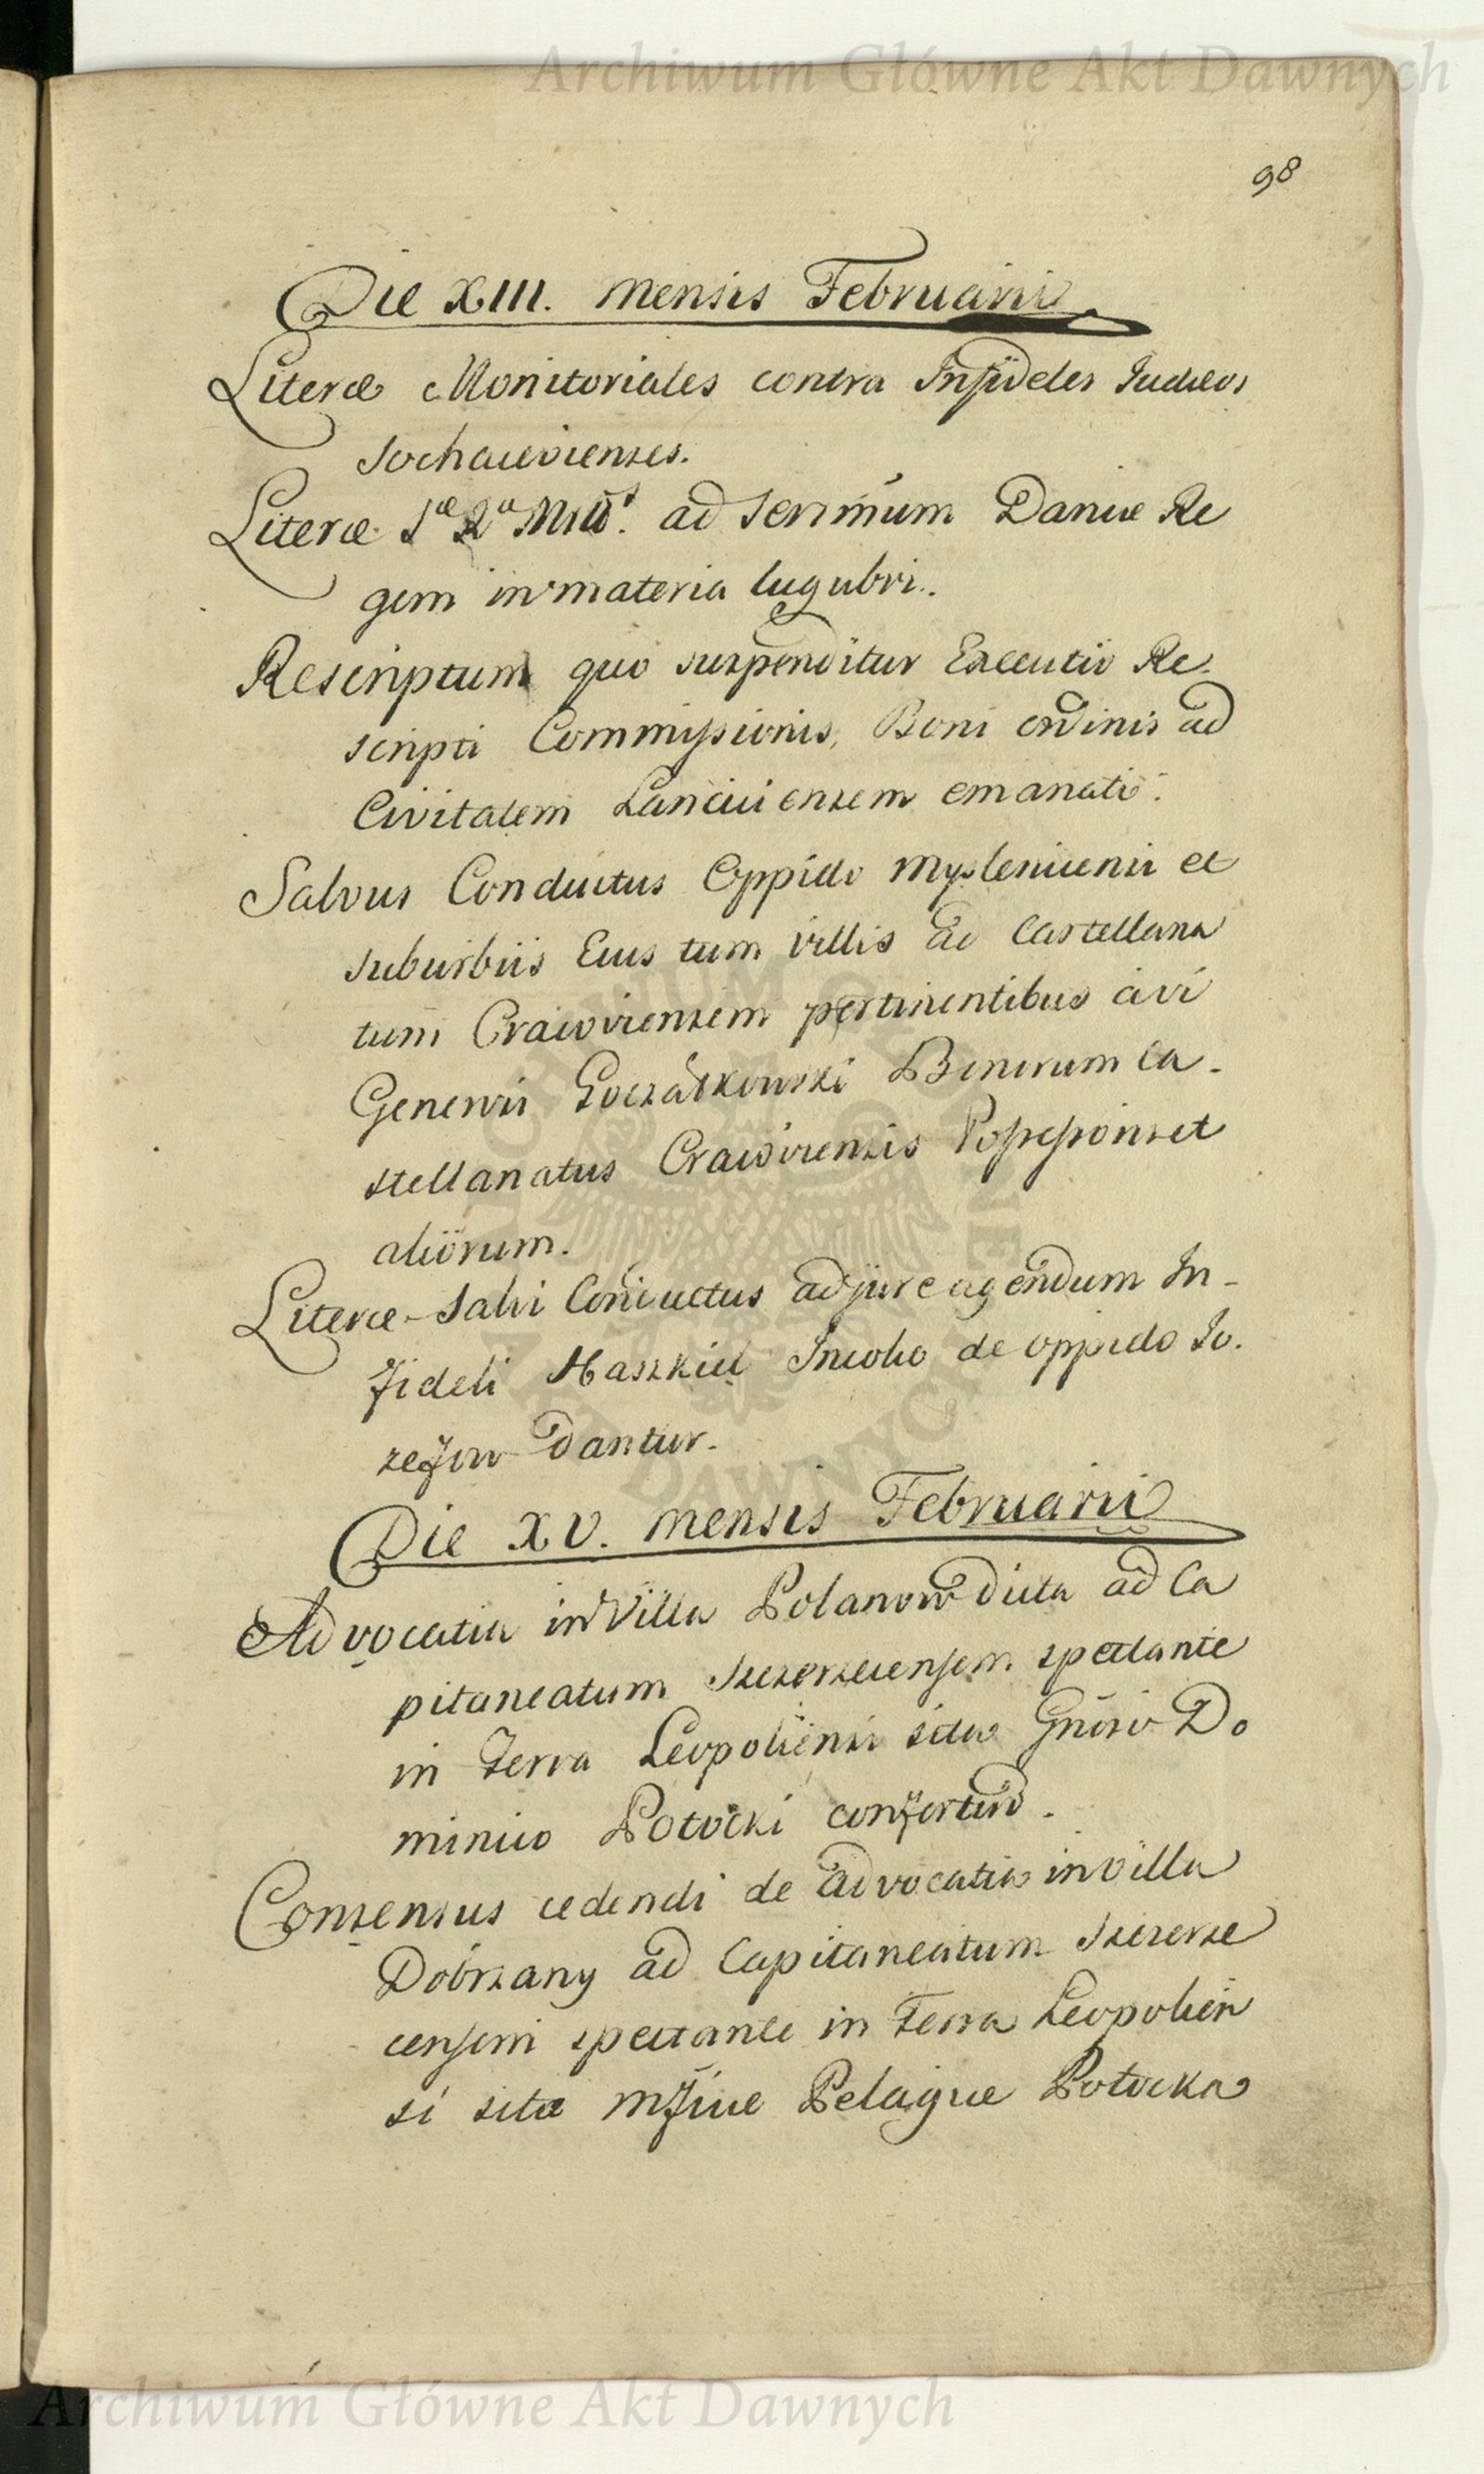 Archiwum Główne Akt Dawnych
98
Die XIII. mensis Februarii
Literæ Monitoriales contra Infideles Judæos
Sochacvienses.
Literæ Sæ Ræ Mttis. ad Sernmum Daniæ Re
gem in materia lugubri.
Rescriptum quo suspenditur Executio Re-
scripti Commissionis, Boni ordinis ad
Civitatem Lanciciensem emanati.
Salvus Conductus Oppido Myslenicensi et
suburbiis Eius tum villis ad Castellana
tum Cracoviensem pertinentibus
Generosi Bonorum Ca-
stellanatus Cracoviensis Possessoris et
aliorum.
Literæ Salvi Conductus ad jure agendum In-
fideli Haszkiel Incolæ de oppido Jo-
zefow dantur.
Die XV. mensis Februarii
Advocatia in Villa Polanow dicta ad Ca
pitaneatum Szczerzecensem spectante
in Terra Leopoliensi sita Gnoso Do
minico Potocki confertur.
Consensus cedendi de advocatia in villa
Dobrzany ad Capitaneatum Szczerze
censem spectante in Terra Leopolien
si sita Mfficæ Pelagiæ Potocka
Archiwum Główne Akt Dawnych